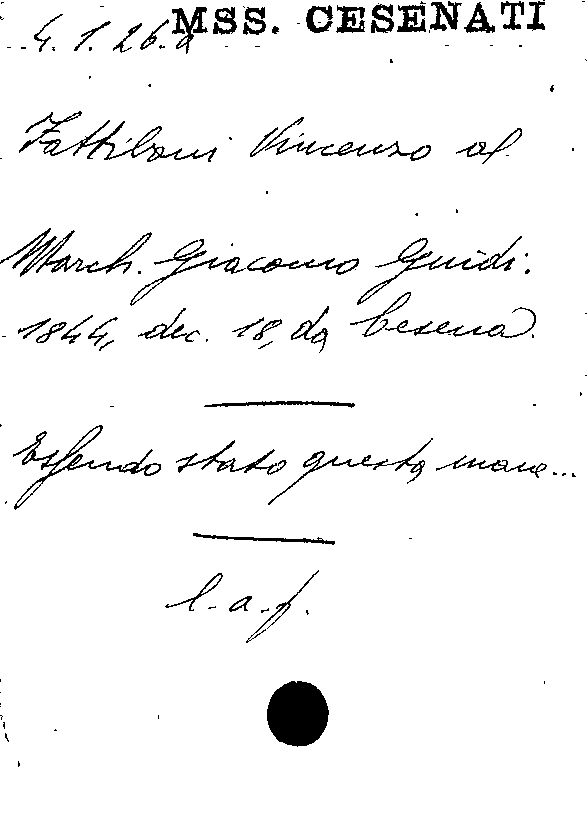 MSS. CESENATI
4.1.26.a
Fattiboni Vincenzo al
March. Giacomo Guidi.
1844, dec. 18, da Cesena.
Essendo stato questa mane...
l.a.f.